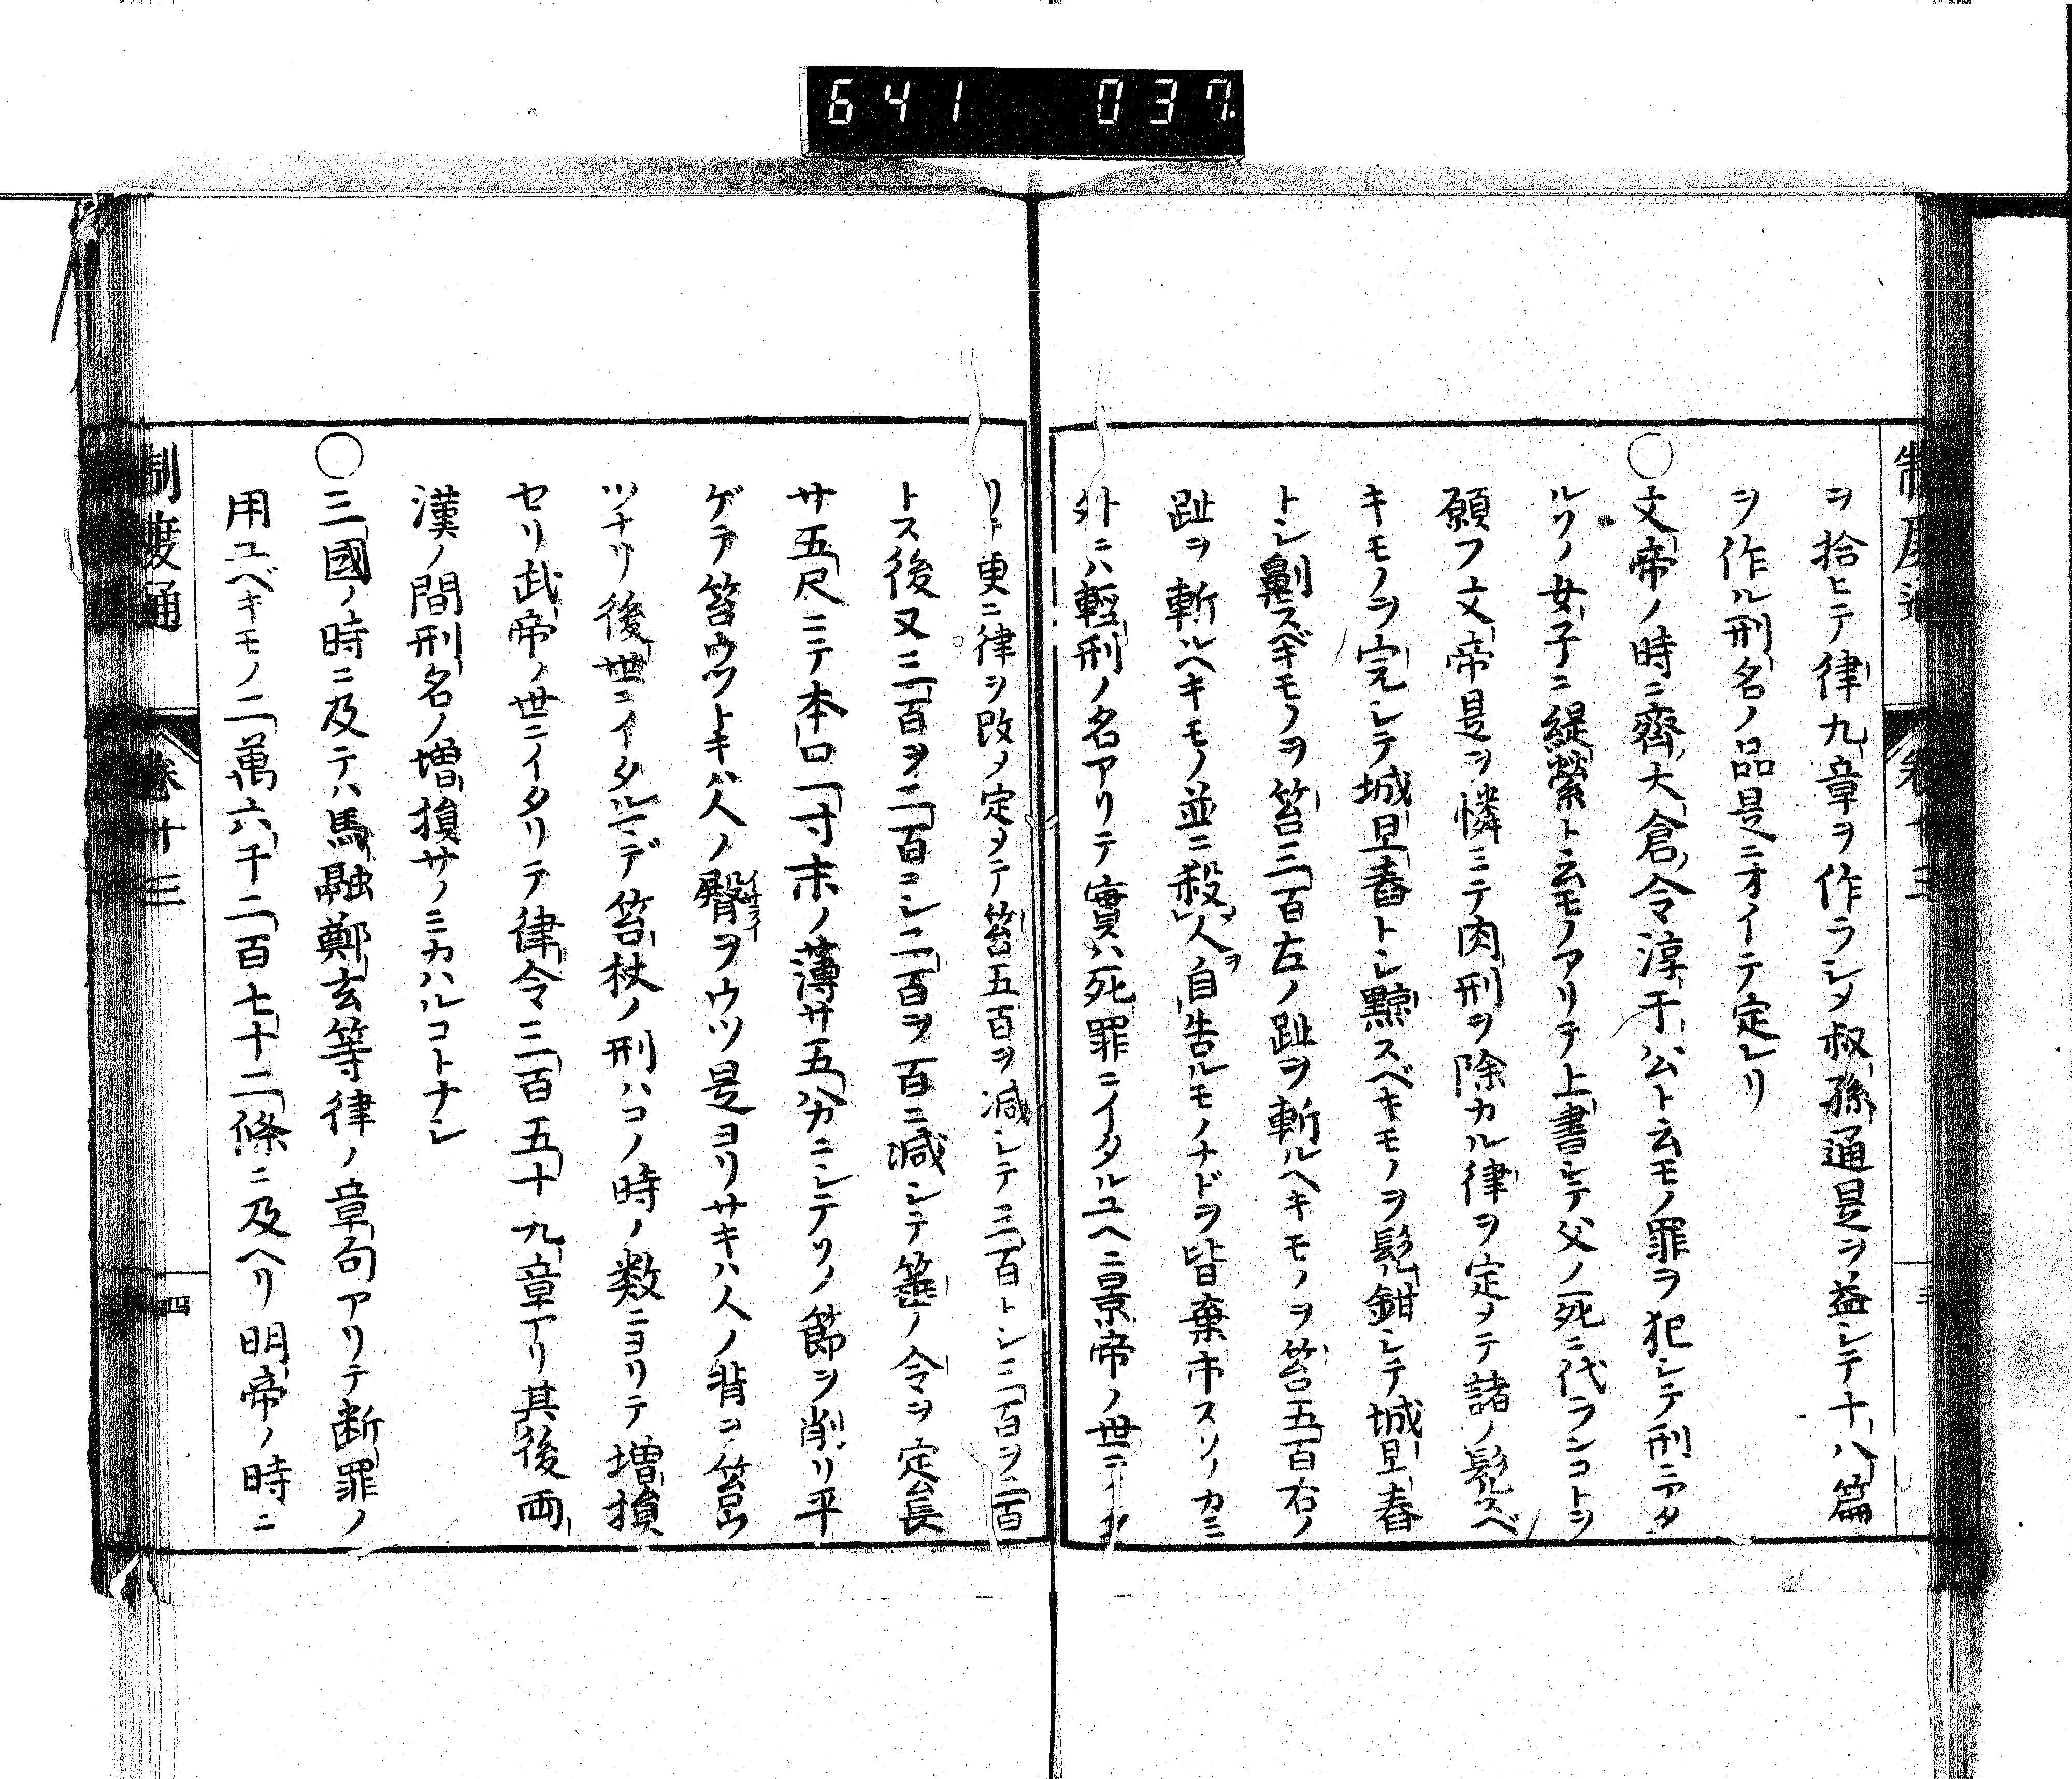 641 037
制度通 卷十三 三
ヲ拾ヒテ律九章ヲ作ラシメ叔孫通是ヲ益シテ十八篇
ヲ作ル刑名ノ品是ニオイテ定レリ
○文帝ノ時ニ齊大倉令淳于公ト云モノ罪ヲ犯シテ刑ニアタ
ルソノ女子ニ緹縈ト云モノアリテ上書シテ父ノ死ニ代ランコトヲ
願フ文帝是ヲ憐ミテ肉刑ヲ除カル律ヲ定メテ諸ノ髠スベ
キモノヲ完シテ城旦舂トシ黥スベキモノヲ髠鉗シテ城旦舂
トシ劓スベキモノヲ笞三百左ノ趾ヲ斬ルヘキモノヲ笞五百右ノ
趾ヲ斬ルヘキモノ並ニ殺人ヲ自告ルモノナドヲ皆棄市スソノカミ
外ニハ輕刑ノ名アリテ實ハ死罪ニイタルユヘニ景帝ノ世ニイタ
リテ更ニ律ヲ改メ定メテ笞五百ヲ減シテ三百トシ三百ヲ二百
トス後又三百ヲ二百ニシ二百ヲ百ニ減シテ箠ノ令ヲ定長
サ五尺ニテ本口一寸末ノ薄サ五分ニシテソノ節ヲ削リ平
ゲテ笞ウツトキハ人ノ臀イサライヲウツ是ヨリサキハ人ノ背ヲ笞ウ
ツナリ後世ニイタルマデ笞杖ノ刑ハコノ時ノ数ニヨリテ増損
セリ武帝ノ世ニイタリテ律令三百五十九章アリ其後両
漢ノ間刑名ノ増損サノミカハルコトナシ
○三國ノ時ニ及テハ馬融鄭玄等律ノ章句アリテ断罪ノ
用ユベキモノ二萬六千二百七十二條ニ及ヘリ明帝ノ時ニ
制度通 卷十三 四